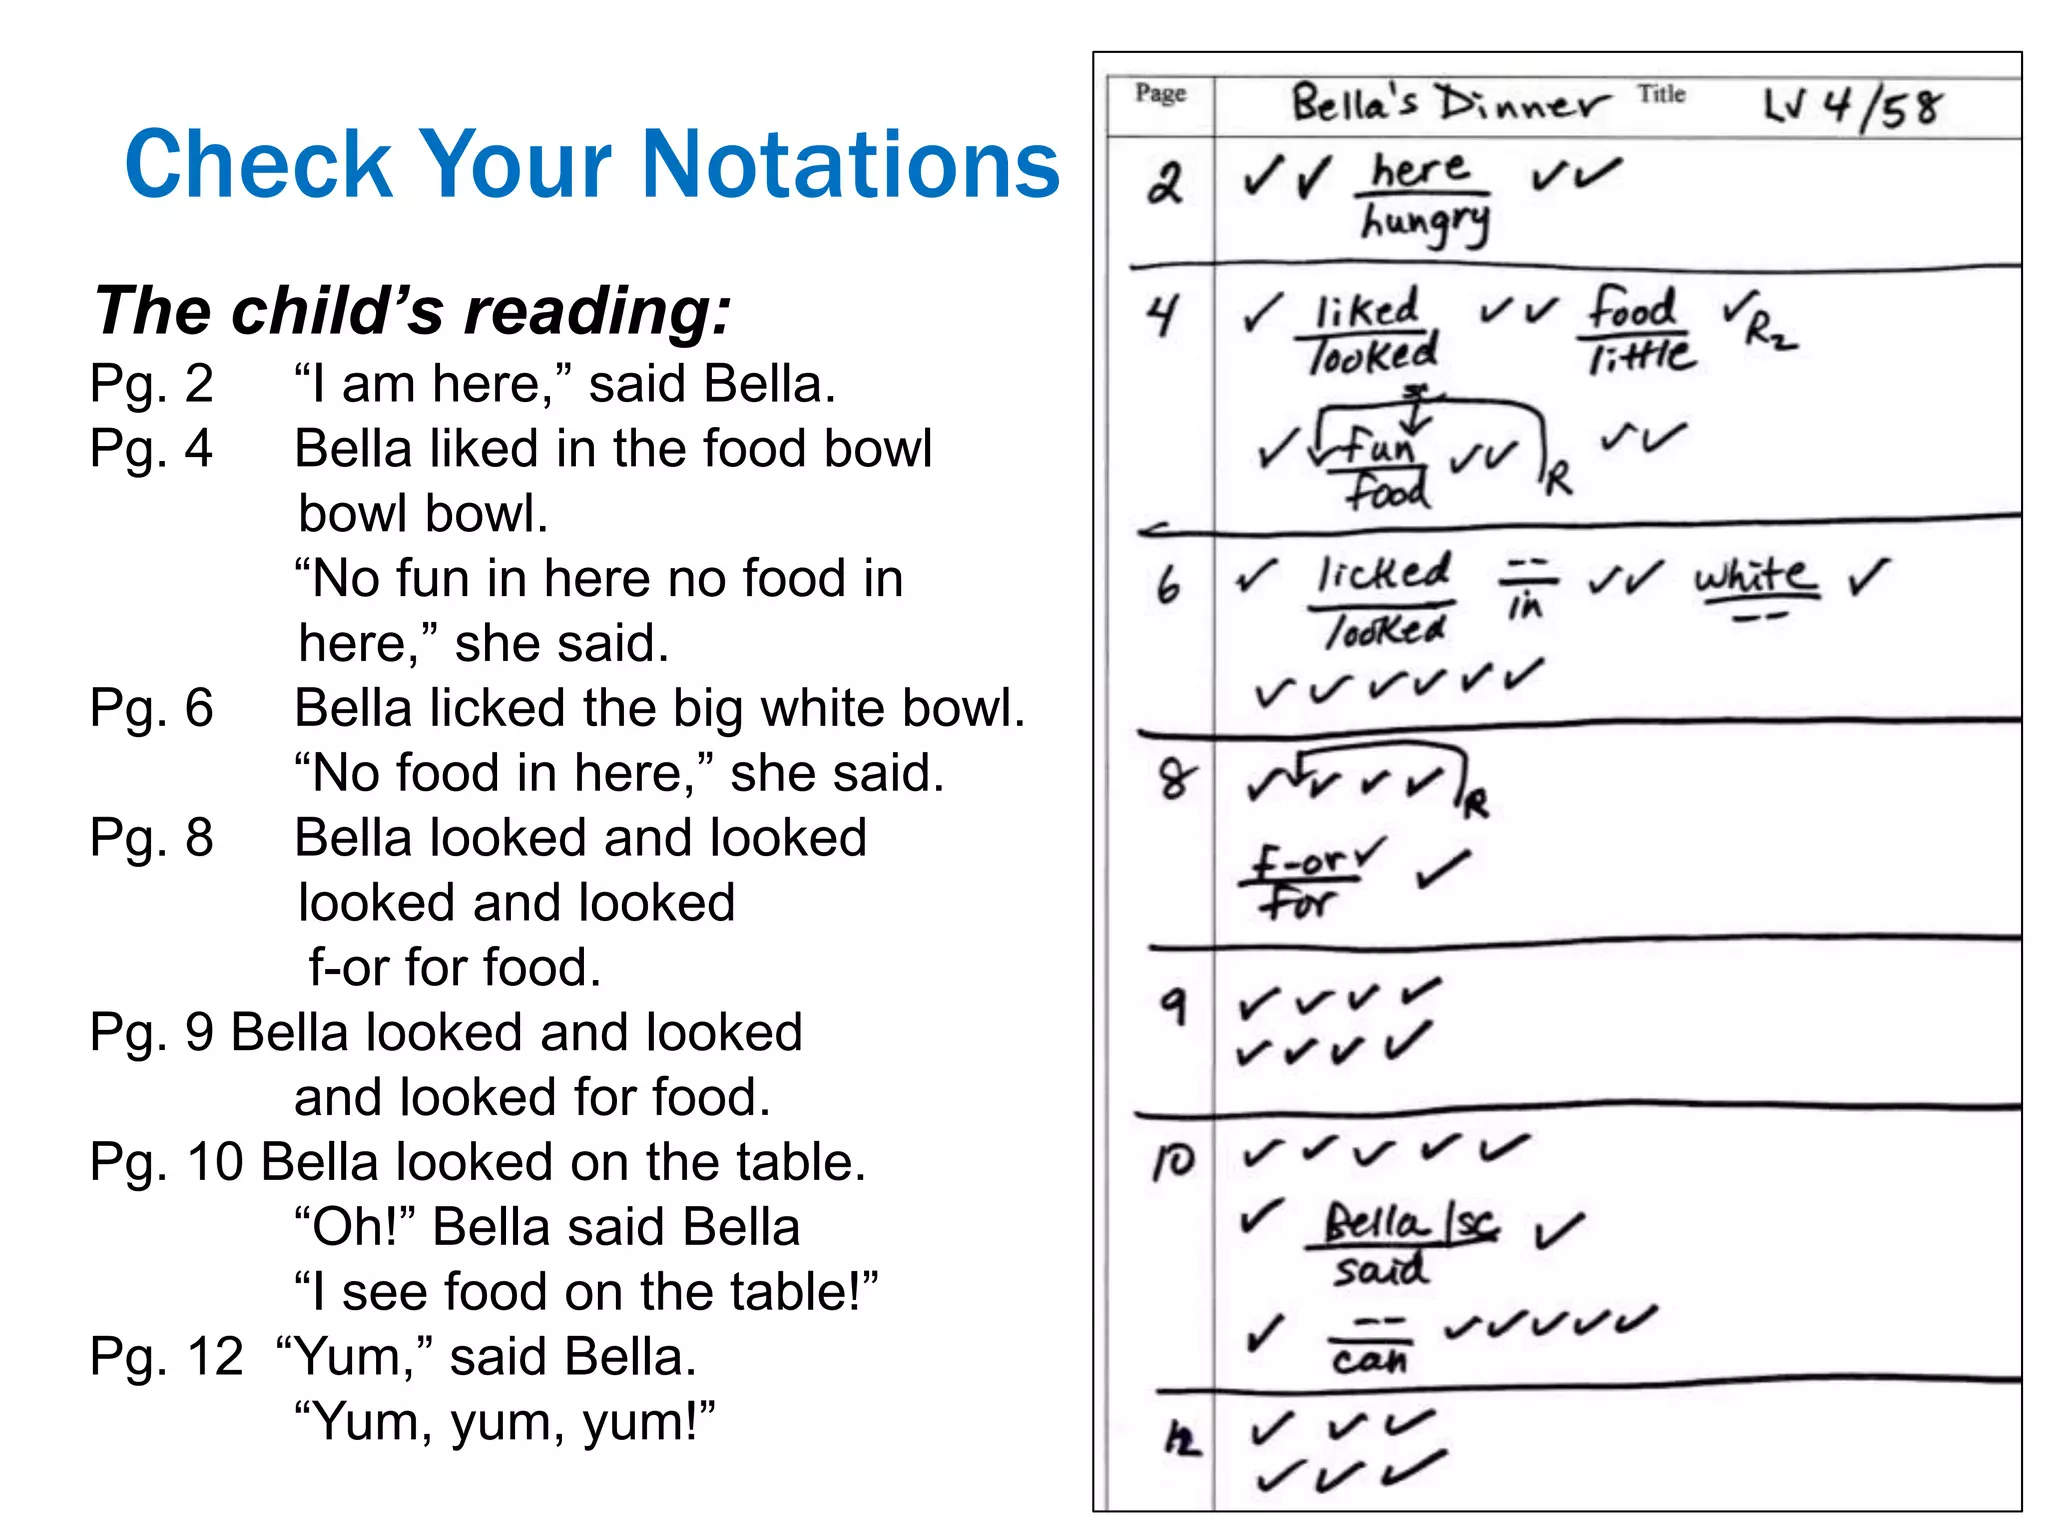 Check Your Notations
The child’s reading:
Pg. 2 “I am here,” said Bella.
Pg. 4 Bella liked in the food bowl
bowl bowl.
“No fun in here no food in
here,” she said.
Pg. 6 Bella licked the big white bowl.
“No food in here,” she said.
Pg. 8 Bella looked and looked
looked and looked
f-or for food.
Pg. 9 Bella looked and looked
and looked for food.
Pg. 10 Bella looked on the table.
“Oh!” Bella said Bella
“I see food on the table!”
Pg. 12 “Yum,” said Bella.
“Yum, yum, yum!”
Page Bella's Dinner Title LV 4/58
2 ✓ ✓ here ✓ ✓
hungry
4 ✓ liked ✓ ✓ food ✓ R2
looked little
sc
✓ ✓ fun ✓ ✓ R ✓ ✓
food
6 ✓ licked -- ✓ ✓ white ✓
looked in --
✓ ✓ ✓ ✓ ✓ ✓
8 ✓ ✓ ✓ ✓ R
f-or ✓ ✓
for
9 ✓ ✓ ✓ ✓
✓ ✓ ✓ ✓
10 ✓ ✓ ✓ ✓ ✓
✓ Bella |sc ✓
said
✓ -- ✓ ✓ ✓ ✓ ✓
can
12 ✓ ✓ ✓
✓ ✓ ✓